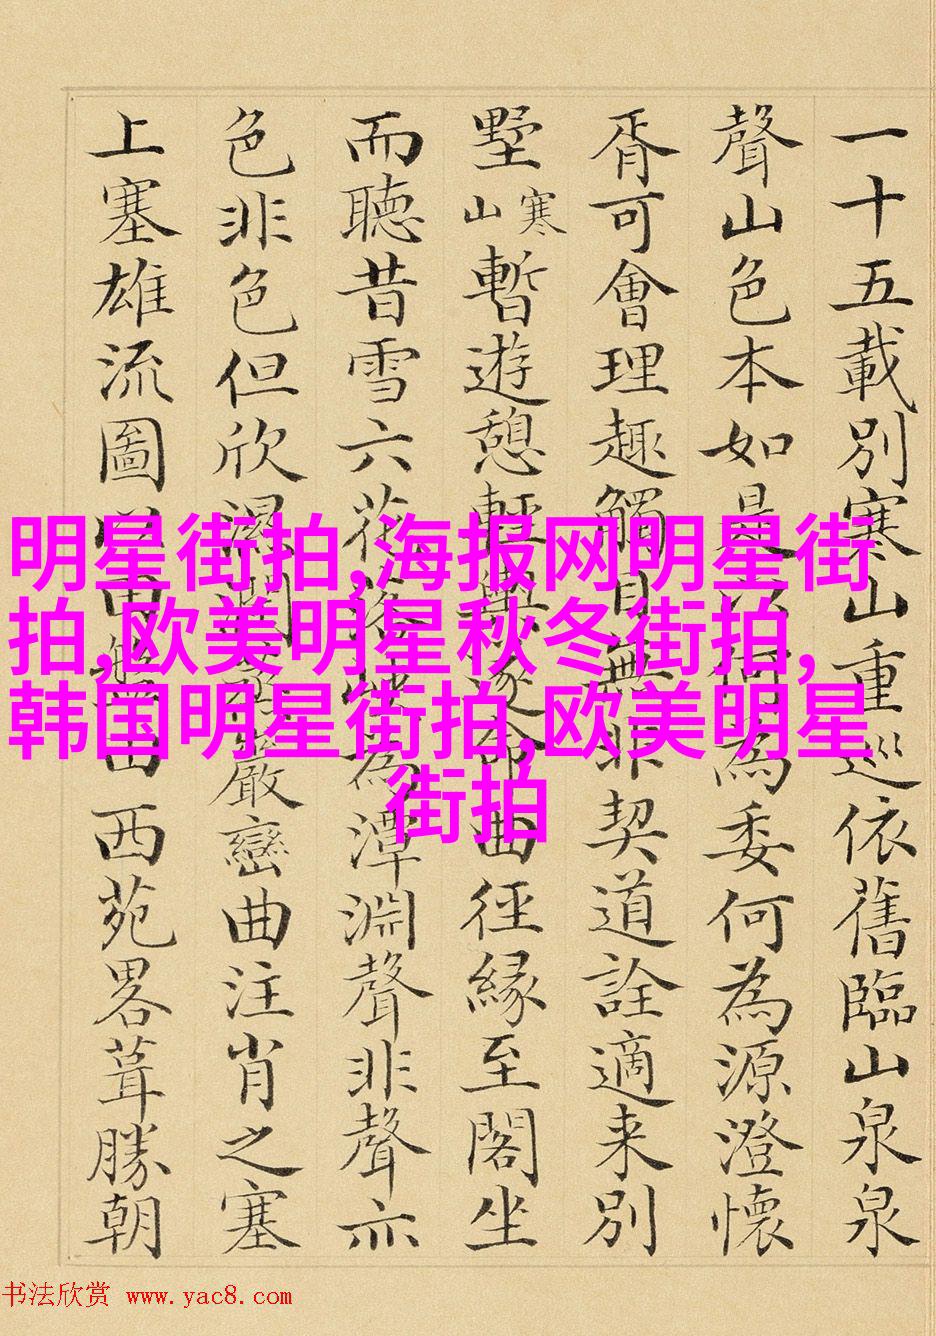 一十五載別寒山重巡依舊臨山泉泉
聲山色本如是何為委何為源澄懷
胥可會理趣觸目無非契道詮適来別
墅寒山暫遊憩輕輿遂命曲徑緣至閣坐
而聽昔雪六花為潭淵聲非聲亦
色非色但欣巖巒曲注肖之塞
上塞雄流圖山西苑畧葺勝朝
明星街拍,海报网明星街
拍,欧美明星秋冬街拍,
韩国明星街拍,欧美明星
街拍
书法欣赏 www.yac8.com